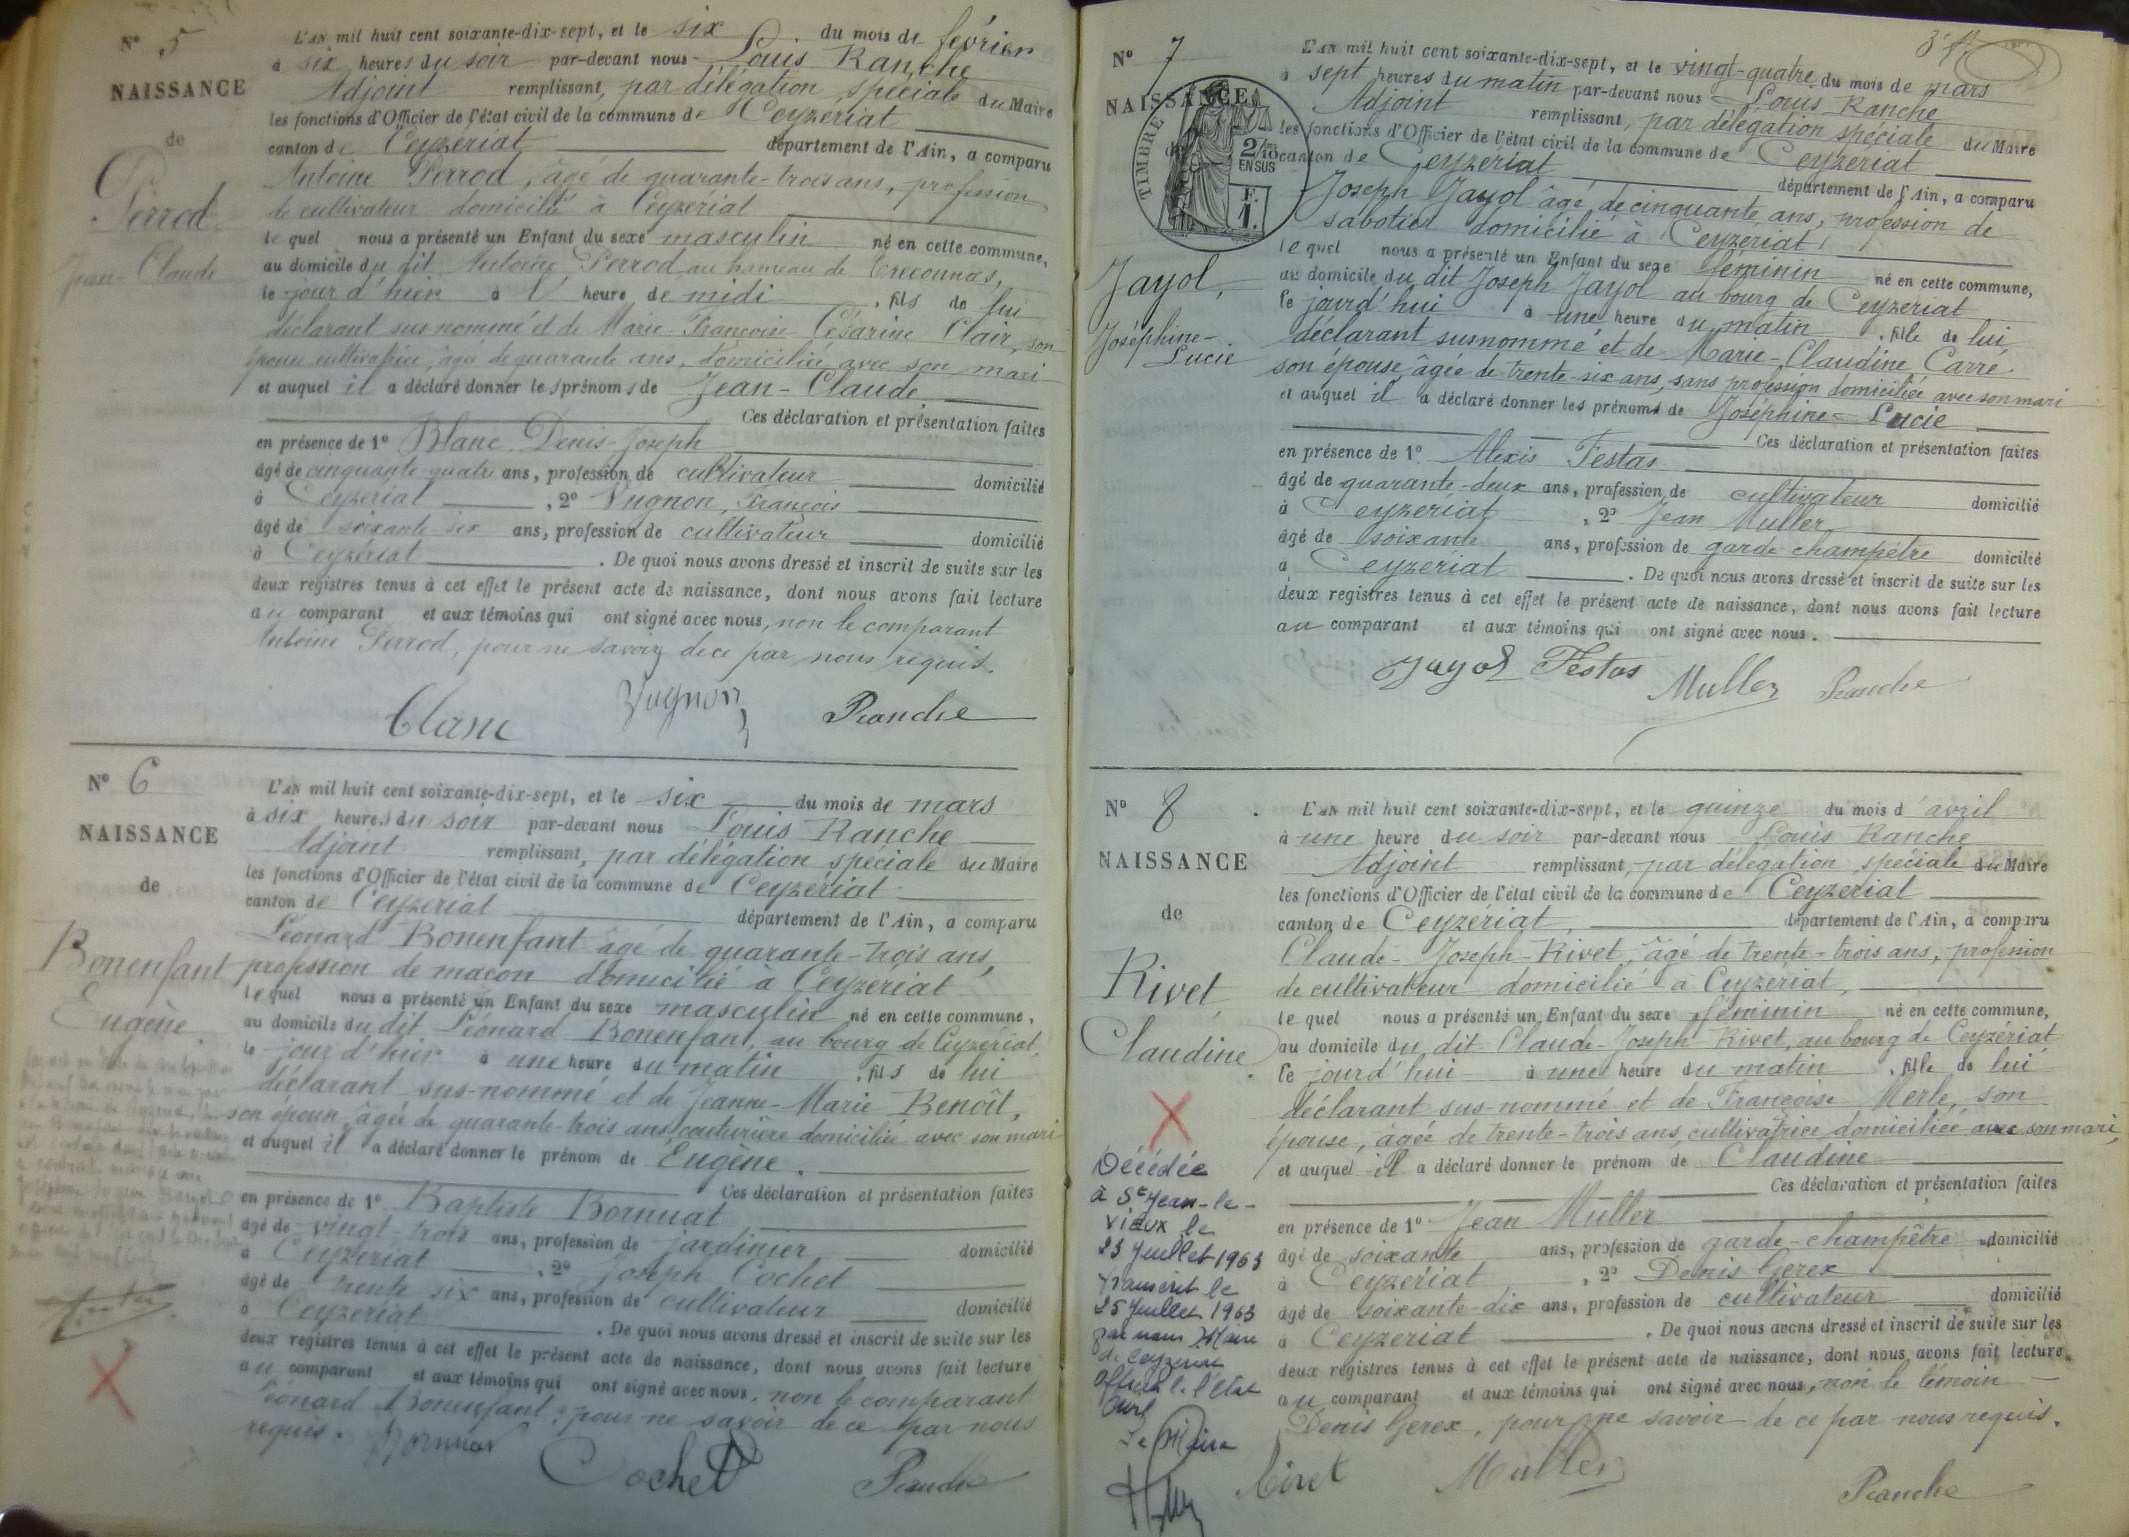 N° 5
NAISSANCE
de
Perrod
Jean-Claude
L'AN mil huit cent soixante-dix-sept, et le six du mois de février
à six heures du soir par-devant nous Louis Ranche
Adjoint remplissant, par délégation spéciale du Maire
les fonctions d'Officier de l'état civil de la commune de Ceyzériat
canton de Ceyzériat département de l'Ain, a comparu
Antoine Perrod, âgé de quarante-trois ans, profession
de cultivateur domicilié à Ceyzériat
lequel nous a présenté un Enfant du sexe masculin né en cette commune,
au domicile du dit Antoine Perrod au hameau de
le jour d'hier à l' heure de midi, fils de lui
déclarant sus-nommé et de Marie-Françoise Césarine Clair, son
épouse cultivatrice, âgée de quarante ans, domiciliée avec son mari
et auquel il a déclaré donner les prénoms de Jean-Claude
Ces déclaration et présentation faites
en présence de 1° Blanc Denis-Joseph
âgé de cinquante quatre ans, profession de cultivateur domicilié
à Ceyzériat, 2° Vugnon, François
âgé de soixante six ans, profession de cultivateur domicilié
à Ceyzériat. De quoi nous avons dressé et inscrit de suite sur les
deux registres tenus à cet effet le présent acte de naissance, dont nous avons fait lecture
au comparant et aux témoins qui ont signé avec nous, non le comparant
Antoine Perrod, pour ne savoir de ce par nous requis.
Blanc Vugnon Ranche
N° 6
NAISSANCE
de
Bonenfant
Eugène
L'AN mil huit cent soixante-dix-sept, et le six du mois de mars
à six heures du soir par-devant nous Louis Ranche
Adjoint remplissant, par délégation spéciale du Maire
les fonctions d'Officier de l'état civil de la commune de Ceyzériat
canton de Ceyzériat département de l'Ain, a comparu
Léonard Bonenfant âgé de quarante-trois ans,
profession de maçon domicilié à Ceyzériat
lequel nous a présenté un Enfant du sexe masculin né en cette commune,
au domicile du dit Léonard Bonenfant, au bourg de Ceyzériat,
le jour d'hier à une heure du matin, fils de lui
déclarant sus-nommé et de Jeanne-Marie Benoît,
son épouse, âgée de quarante-trois ans, couturière domiciliée avec son mari
et auquel il a déclaré donner le prénom de Eugène.
Ces déclaration et présentation faites
en présence de 1° Baptiste Bornuat
âgé de vingt-trois ans, profession de jardinier domicilié
à Ceyzériat, 2° Joseph Cochet
âgé de trente six ans, profession de cultivateur domicilié
à Ceyzériat. De quoi nous avons dressé et inscrit de suite sur les
deux registres tenus à cet effet le présent acte de naissance, dont nous avons fait lecture
au comparant et aux témoins qui ont signé avec nous, non le comparant
Léonard Bonenfant, pour ne savoir de ce par nous
requis. Bornuat Cochet Ranche
N° 7
NAISSANCE
TIMBRE
2/10 EN SUS
F. 1.
Jayol,
Joséphine-
Lucie
L'AN mil huit cent soixante-dix-sept, et le vingt-quatre du mois de mars
à sept heures du matin par-devant nous Louis Ranche
Adjoint remplissant, par délégation spéciale du Maire
les fonctions d'Officier de l'état civil de la commune de Ceyzériat
canton de Ceyzériat département de l'Ain, a comparu
Joseph Jayol âgé de cinquante ans, profession de
sabotier domicilié à Ceyzériat,
lequel nous a présenté un Enfant du sexe féminin né en cette commune,
au domicile du dit Joseph Jayol au bourg de Ceyzériat
le jourd'hui à une heure du matin, fille de lui
déclarant susnommé et de Marie-Claudine Carré
son épouse âgée de trente-six ans, sans profession domiciliée avec son mari
et auquel il a déclaré donner les prénoms de Joséphine-Lucie
Ces déclaration et présentation faites
en présence de 1° Alexis Festas
âgé de quarante-deux ans, profession de cultivateur domicilié
à Ceyzériat, 2° Jean Muller
âgé de soixante ans, profession de garde champêtre domicilié
à Ceyzériat. De quoi nous avons dressé et inscrit de suite sur les
deux registres tenus à cet effet le présent acte de naissance, dont nous avons fait lecture
au comparant et aux témoins qui ont signé avec nous.
Jayol Festas Muller Ranche
N° 8
NAISSANCE
de
Rivet
Claudine
Décédée
à St Jean-le-
vieux le
23 Juillet 1963
transcrit le
25 Juillet 1963
par nous Maire
de Ceyzériat
Officier de l'Etat
Civil
Le Maire
L'AN mil huit cent soixante-dix-sept, et le quinze du mois d'avril
à une heure du soir par-devant nous Louis Ranche
Adjoint remplissant, par délégation spéciale du Maire
les fonctions d'Officier de l'état civil de la commune de Ceyzériat
canton de Ceyzériat, département de l'Ain, a comparu
Claude-Joseph-Rivet, âgé de trente-trois ans, profession
de cultivateur domicilié à Ceyzériat,
lequel nous a présenté un Enfant du sexe féminin né en cette commune,
au domicile du dit Claude-Joseph Rivet, au bourg de Ceyzériat
le jourd'hui à une heure du matin, fille de lui
déclarant sus-nommé et de Françoise Merle, son
épouse, âgée de trente-trois ans, cultivatrice domiciliée avec son mari,
et auquel il a déclaré donner le prénom de Claudine
Ces déclaration et présentation faites
en présence de 1° Jean Muller
âgé de soixante ans, profession de garde-champêtre domicilié
à Ceyzériat, 2° Denis Gerex
âgé de soixante-dix ans, profession de cultivateur domicilié
à Ceyzériat. De quoi nous avons dressé et inscrit de suite sur les
deux registres tenus à cet effet le présent acte de naissance, dont nous avons fait lecture
au comparant et aux témoins qui ont signé avec nous, non le témoin
Denis Gerex, pour ne savoir de ce par nous requis.
Rivet Muller Ranche